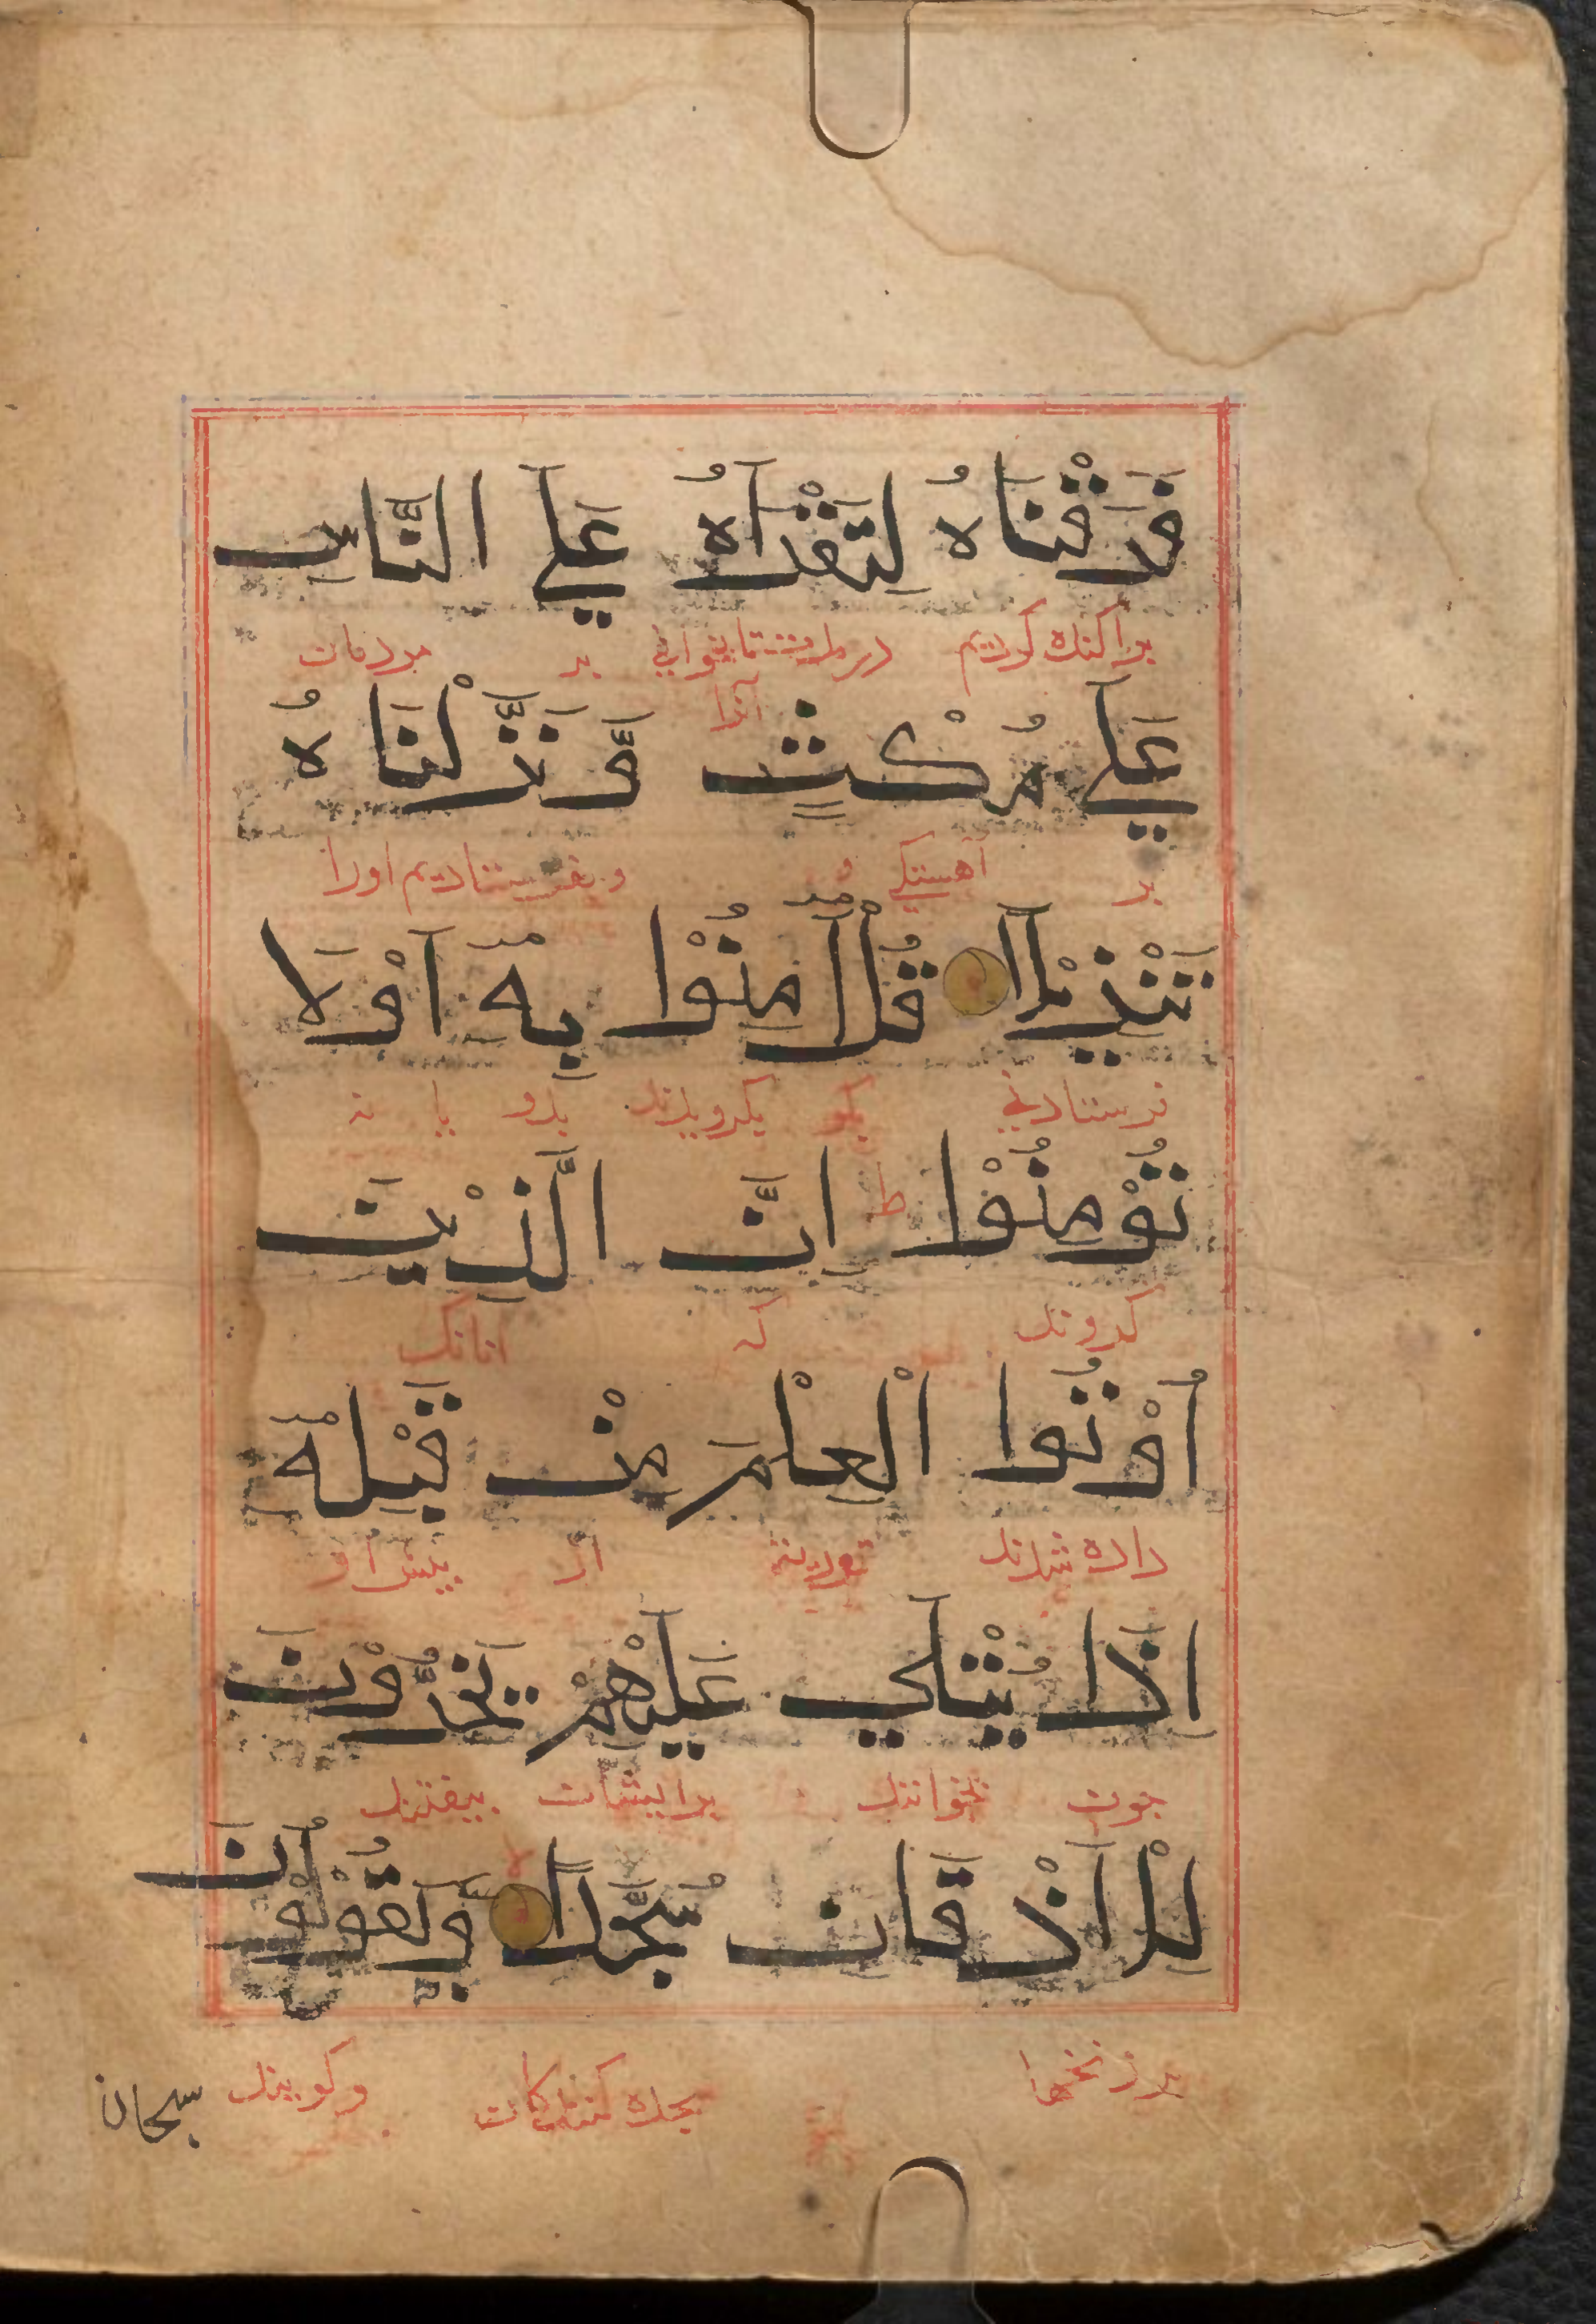 فَرَقْنَاهُ لِتَقْرَاَهُ عَلَي النَّاسِ
پراکنده کردیم در بر مردمان
آنرا
عَلَي مُكْثٍ وَّنَزَّلْنَاهُ
بر آهستگی و بفرستادیم اورا
تَنْزِيْلًا قُلْ اٰمِنُوْا بِهٖ اَوْلَا
فرستادنی بگو بگرویدند بدو یا نه
تُوْمِنُوْا ط اِنَّ الَّذِيْنَ
گروند که آنانک
اُوْتُوا الْعِلْمَ مِنْ قَبْلِهٖ
داده شدند توریت از پیش او
اِذَا يُتْلَي عَلَيْهِمْ يَخِرُّوْنَ
چون بخوانند بر ایشان بیفتند
لِلْاَذْقَانِ سُجَّدًا لا وَيَقُوْلُوْنَ
بر زنخها سجده کنندکان و کویند
سبحان